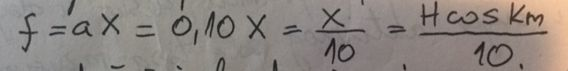 f = aX = 0,10 X = X/10 = H cos Km/10.